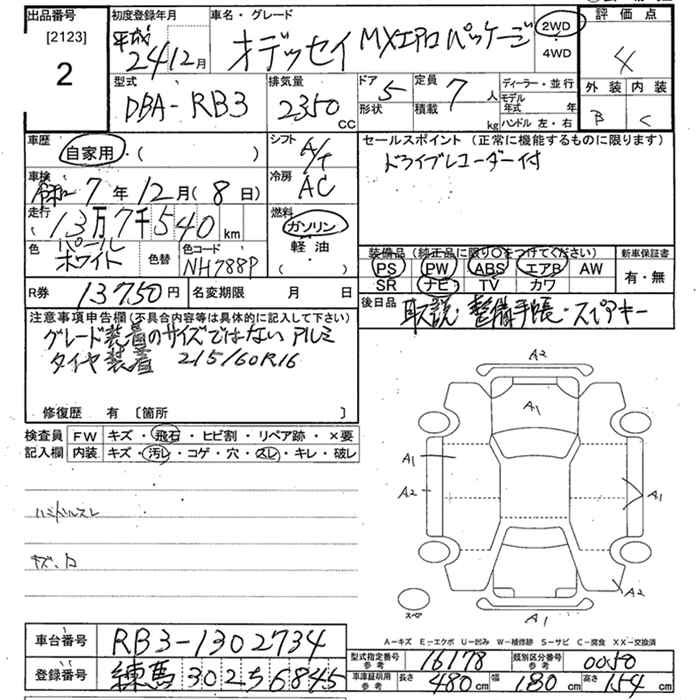 出品番号 初度登録年月 車名・グレード 評価点
[2123] 平成 24 12月 オデッセイ MXエアロパッケージ 2WD ・ 4WD 4
2 外装 内装
型式 排気量 ドア 定員 ディーラー・並行 B C
DBA-RB3 2350 CC 5 7人 モデル年式 年
形状 積載 kg ハンドル 左・右
車歴 シフト セールスポイント (正常に機能するものに限ります)
自家用・( ) A/T ドライブレコーダー付
車検 冷房
令和 7年 12月 ( 8日) AC
走行 燃料
(13万7千540 km ガソリン
色 パールホワイト 色替 色コード NH788P 軽油・( ) 装備品 (純正品に限り〇をつけてください) 新車保証書
PS PW ABS エアB AW 有・無
SR ナビ TV カワ
R券 13750円 名変期限 月 日 後日品 取説・整備手帳・スペアキー
注意事項申告欄(不具合内容等は具体的に記入して下さい)
グレード装着のサイズではないアルミ
タイヤ装着 215/60R16
修復歴 有 〔箇所 〕
検査員 FW キズ・飛石・ヒビ割・リペア跡・×要
記入欄 内装 キズ・汚レ・コゲ・穴・スレ・キレ・破レ
A2
A1
A1
A2
A1
ハンドルスレ
キズ、
A2
スペア
A1
A-キズ E-エクボ U-凹み W-補修跡 S-サビ C-腐食 XX-交換済
車台番号 RB3-1302734
型式指定番号 参考 16178 類別区分番号 参考 0050
登録番号 練馬 302 そ 6845
車庫証明用 参考 長さ 480cm 幅 180cm 高さ 154cm